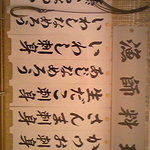 漁師料理
いわしなめろう
いわし刺身
あじなめろう
生だこ刺身
さんま刺身
かつお刺身